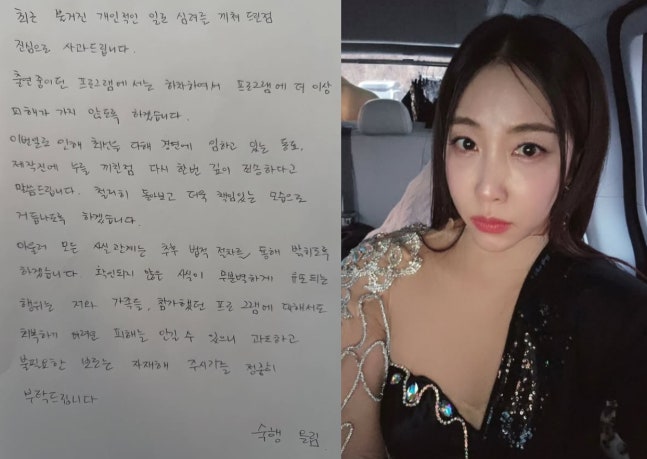 최근 불거진 개인적인 일로 심려를 끼쳐 드린점
진심으로 사과드립니다.
출연 중이던 프로그램에서는 하차하여서 프로그램에 더 이상
피해가 가지 않도록 하겠습니다.
이번일로 인해 최선을 다해 경연에 임하고 있는 동료,
제작진에 누를 끼친점 다시 한번 깊이 죄송하다고
말씀드립니다. 철저히 돌아보고 더욱 책임있는 모습으로
거듭나도록 하겠습니다.
아울러 모든 사실관계는 추후 법적 절차를 통해 밝히도록
하겠습니다. 확인되지 않은 사실이 무분별하게 유포되는
행위는 저와 가족들, 참가했던 프로그램에 대해서도
회복하기 어려운 피해를 안길 수 있으니 과도하고
불필요한 보도는 자제해 주시기를 정중히
부탁드립니다
숙행 올림